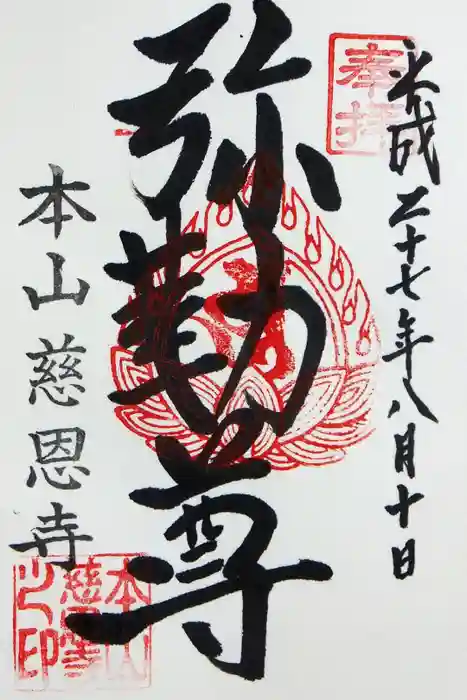 奉拝
平成二十七年八月十日
弥勒尊
本山慈恩寺
本山
慈恩寺
之印